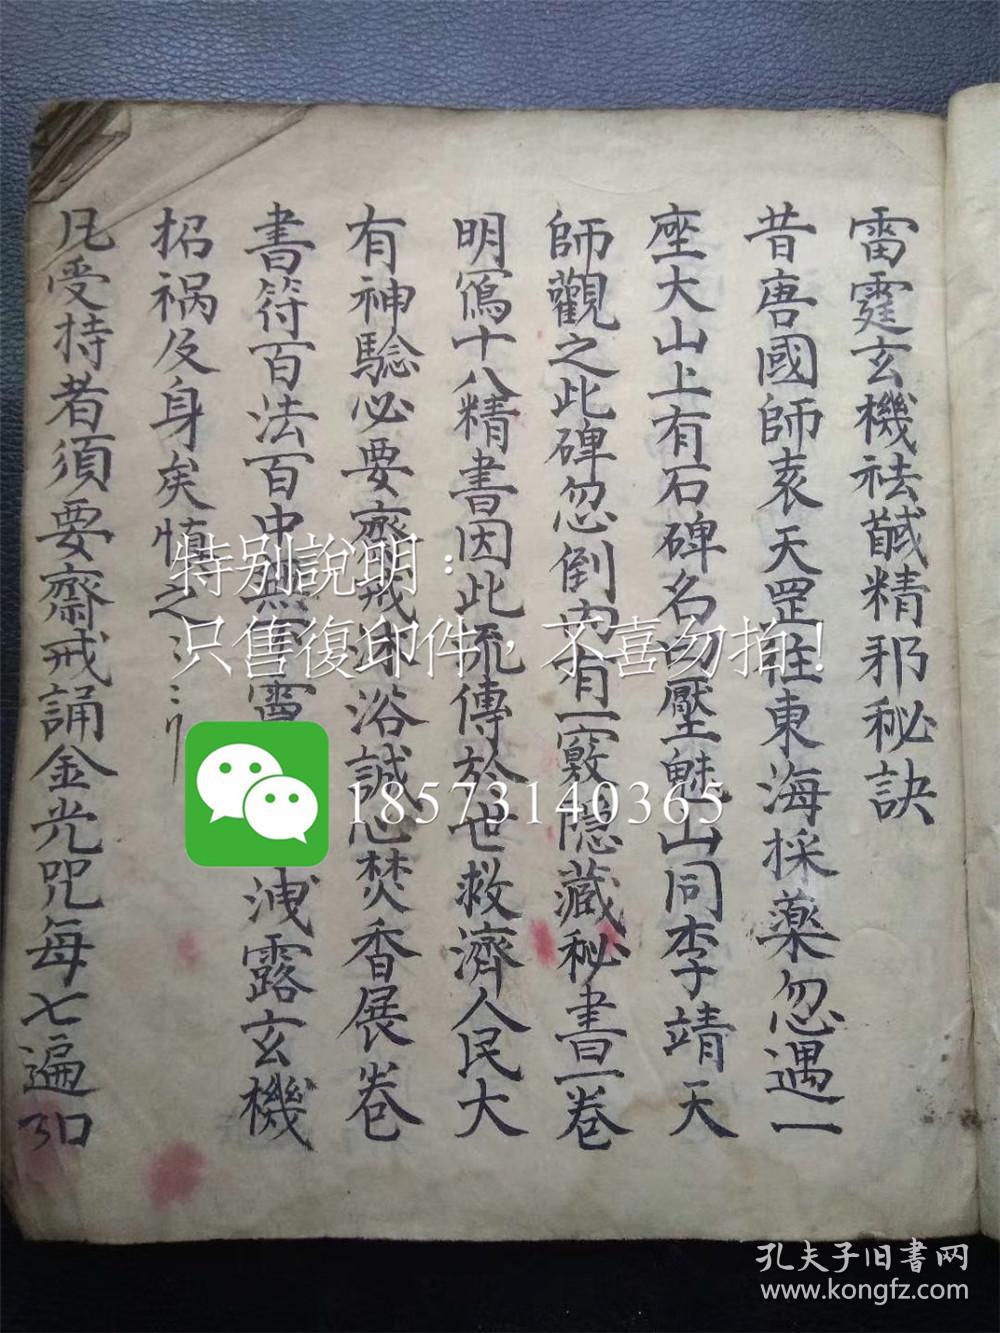 雷霆玄機祛馘精邪秘訣
昔唐國師袁天罡往東海採藥忽遇一
座大山上有石碑名曰壓魅山同李靖天
師觀之此碑忽倒內有一竅隱藏秘書一卷
明寫十八精書因此流傳於世救濟人民大
有神驗必要齋戒沐浴誠心焚香展卷
書符百法百中無 洩露玄機
招祸及身矣慎之
凡受持者須要齋戒誦金光咒每七遍叩
特别說明：
只售復印件，不喜勿拍！
18573140365
孔夫子旧書网
www.kongfz.com